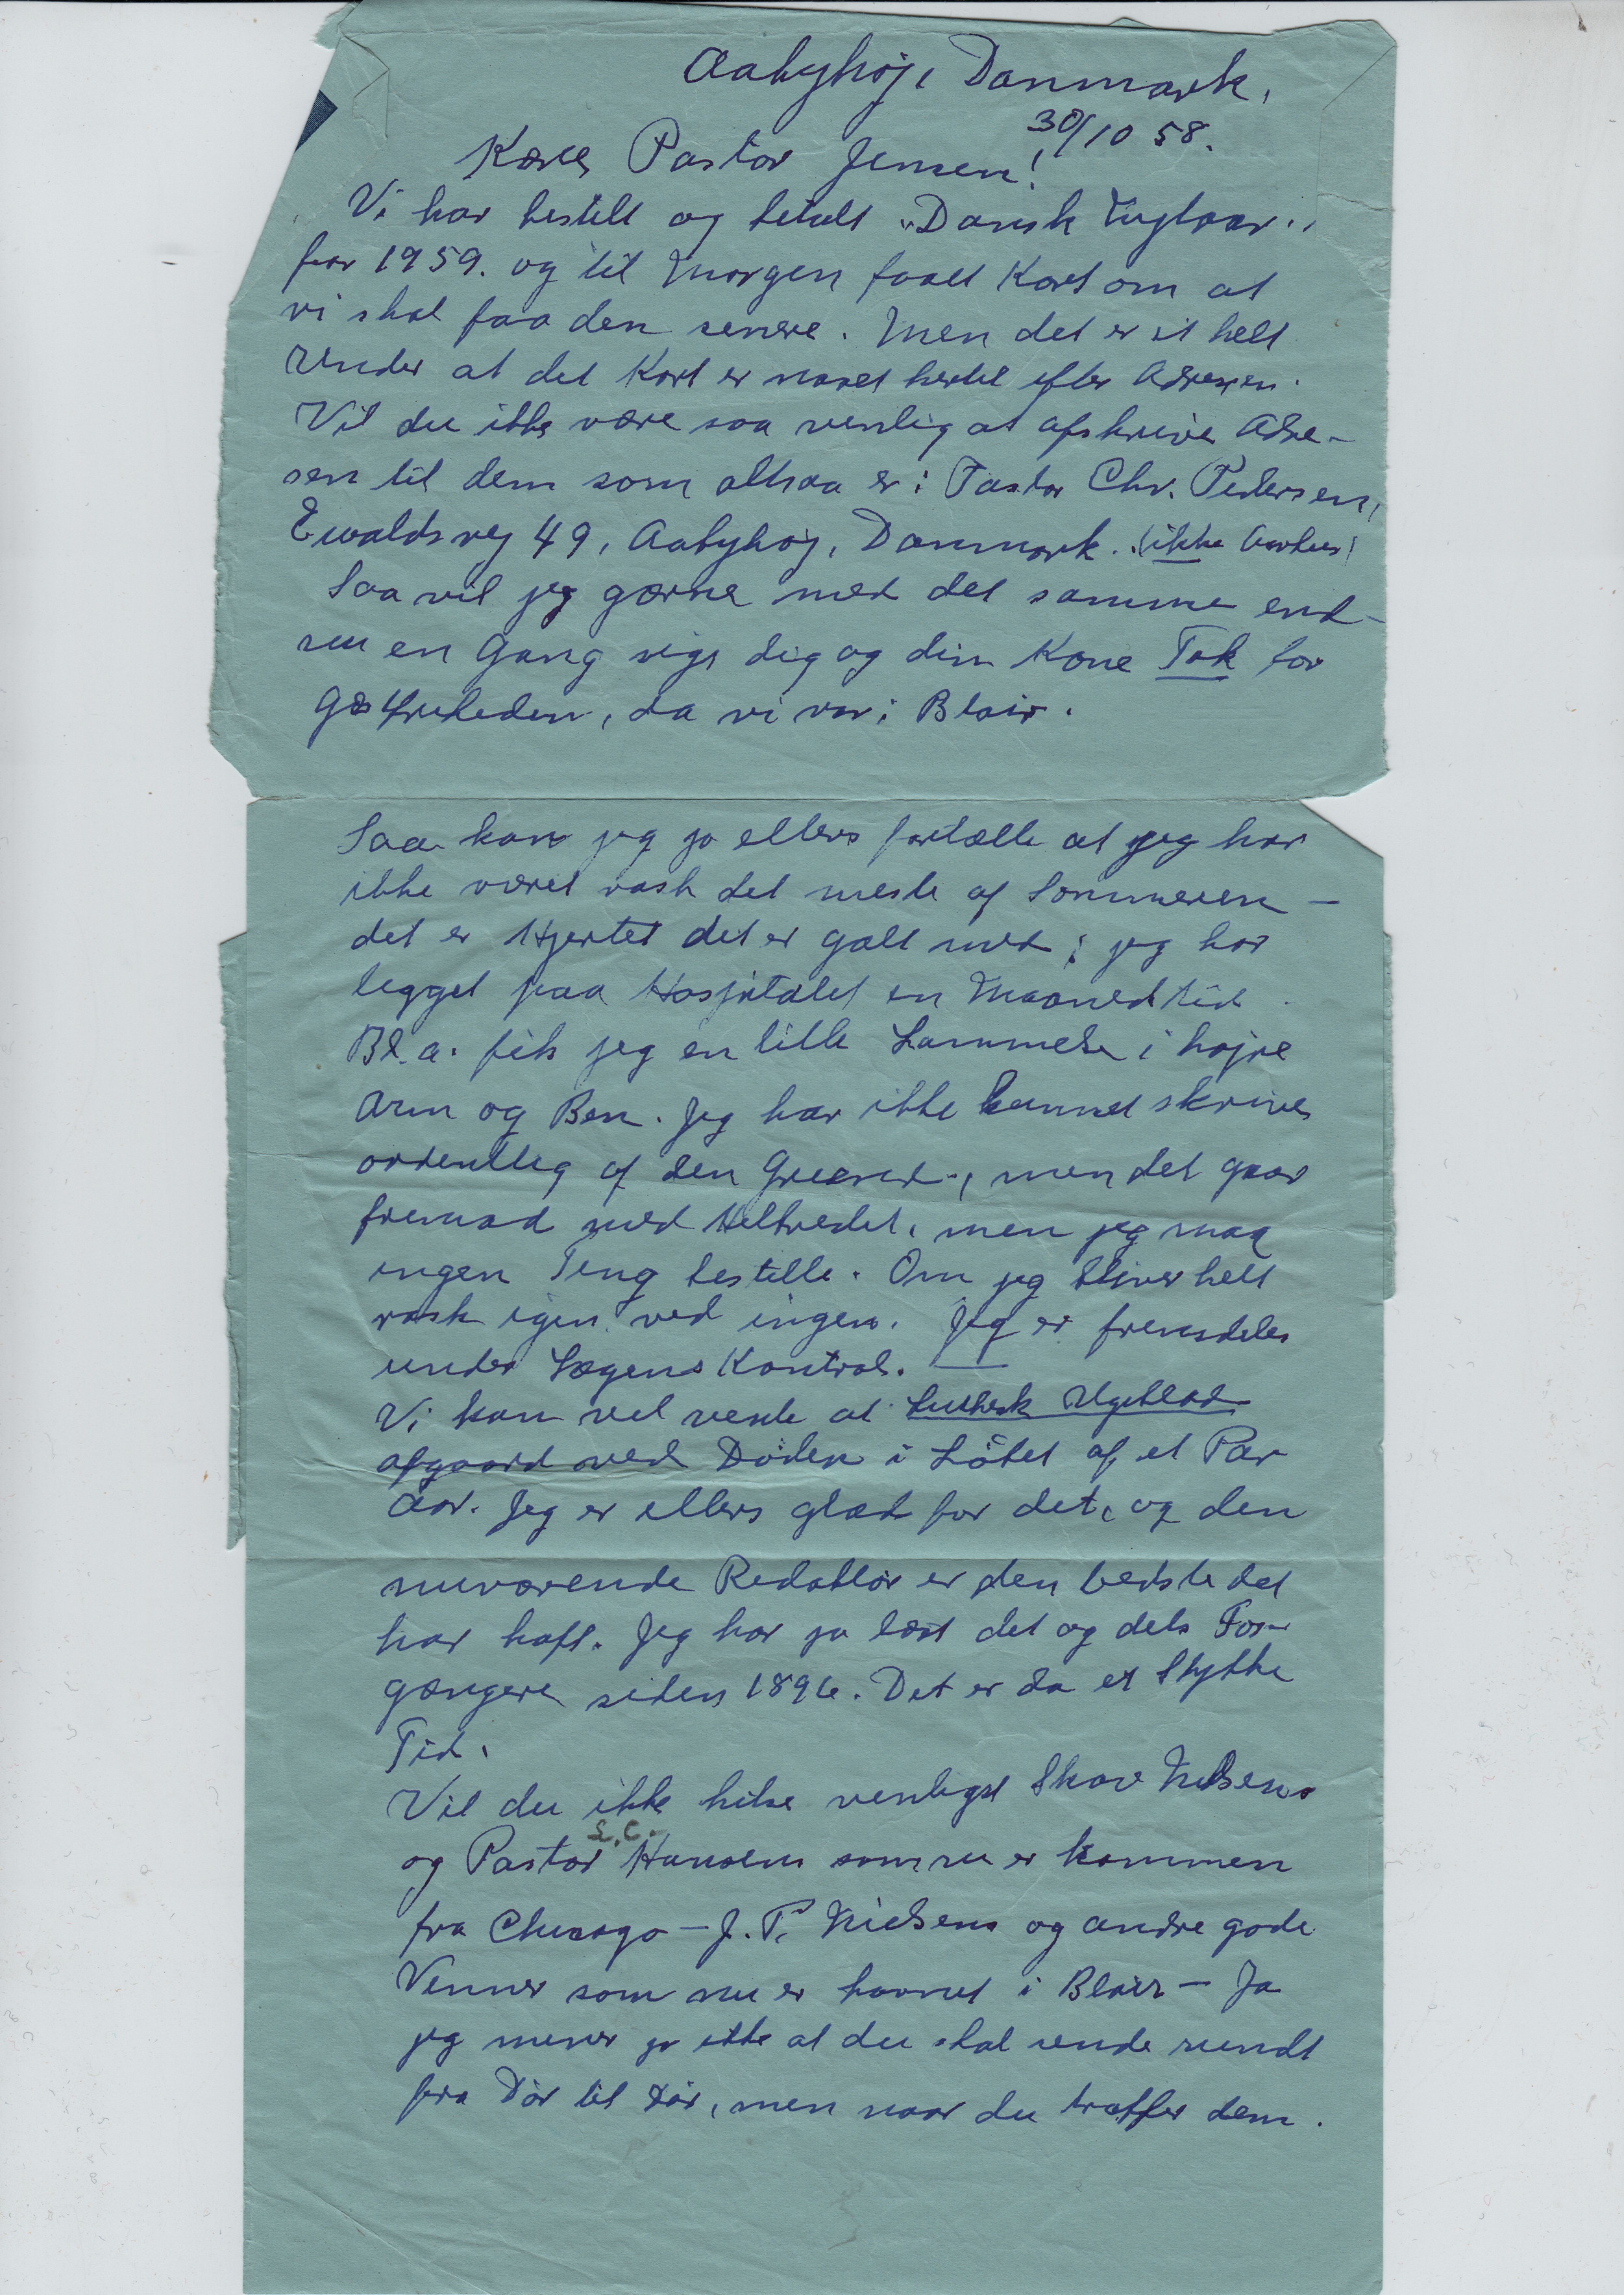 Aabyhøj, Danmark,
30/10 58.
Kære Pastor Jensen!
Vi har bestilt og betalt "Dansk Nytaar"
for 1959. og til Morgen faaet Kort om at
vi skal faa den senere. Men det er et helt
Under at det Kort er naaet hertil efter Adressen.
Vil du ikke være saa venlig at afskrive Adre-
sen til dem som altsaa er: Pastor Chr. Pedersen,
Ewaldsvej 49, Aabyhøj, Danmark. (ikke Aarhus)
Saa vil jeg gærne med det samme end-
nu en Gang sige dig og din Kone Tak for
Gæstfriheden, da vi var i Blair.
Saa kan jeg jo ellers fortælle at jeg har
ikke været rask det meste af Sommeren –
det er Hjertet det er galt med; jeg har
ligget paa Hospitalet en Maaned Tid
Bl.a. fik jeg en lille Lammelse i højre
Arm og Ben. Jeg har ikke kunnet skrive
ordentlig af den Grund, men det gaar
fremad med Helbredet, men jeg maa
ingen Ting bestille. Om jeg bliver helt
rask igen ved ingen. Jeg er fremdeles
under Lægens Kontrol.
Vi kan vel vente at Luthersk Ugeblad
afgaard ved Døden i Løbet af et Par
Aar. Jeg er ellers glad for det, og den
nuværende Redaktør er den bedste det
har haft. Jeg har jo læst det og dets For-
gængere siden 1896. Det er da et Stykke
Tid.
Vil du ikke hilse venligst Skov Nielsens
S.C.
og Pastor Hansens som nu er kommen
fra Chicago – J. P. Nielsens og andre gode
Venner som nu er havnet i Blair – Ja
jeg mener jo ikke at du skal rende rundt
fra Dør til Dør, men naar du træffer dem.